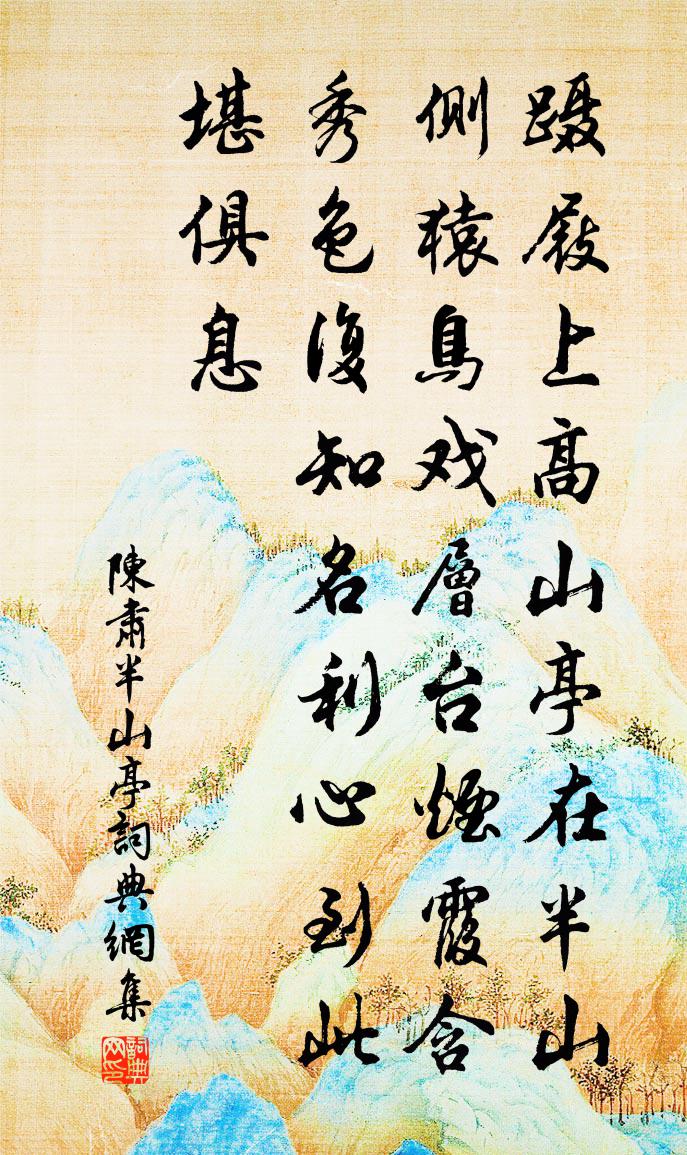 蹑屐上高山亭在半山
侧猿鳥戏層台煙霞含
秀色復知名利心到此
堪俱息
陳肅半山亭詞典網集
詞典网印